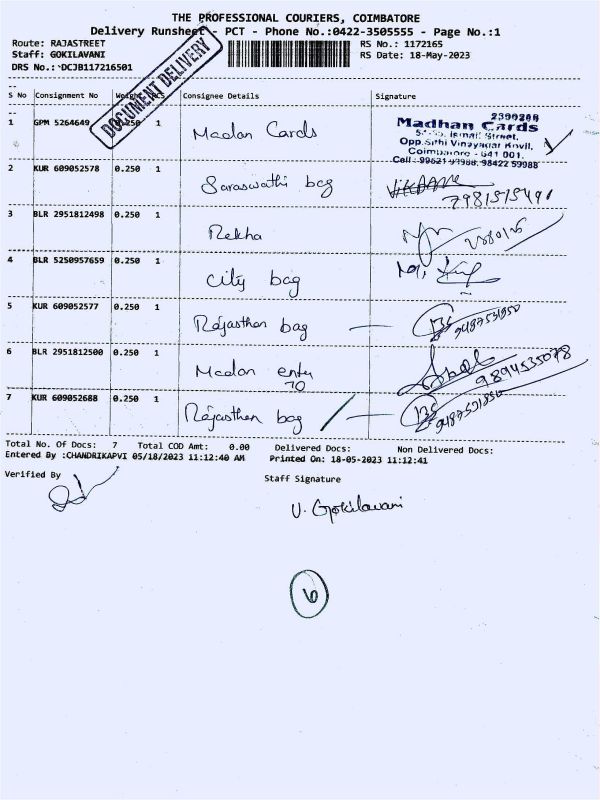 THE PROFESSIONAL COURIERS, COIMBATORE
Delivery Runsheet - PCT - Phone No.:0422-3505555 - Page No.:1
Route: RAJASTREET RS No.: 1172165
Staff: GOKILAVANI RS Date: 18-May-2023
DRS No.: DCJB117216501
DOCUMENT DELIVERY
S No Consignment No Weight PCS Consignee Details Signature
1 GPM 5264649 0.250 1 Madan Cards
2390206
Madhan Cards
Street,
Opp.Sithi Vinayagar Kovil,
Coimbatore - 641 001.
Cell : 98422 59988
2 KUR 609052578 0.250 1 Saraswathi bag
3 BLR 2951812498 0.250 1 Rekha
4 BLR 5250957659 0.250 1 City bag
5 KUR 609052577 0.250 1 Rajasthan bag
6 BLR 2951812500 0.250 1 Madan
9894535078
7 KUR 609052688 0.250 1 Rajasthan bag
Total No. Of Docs: 7 Total COD Amt: 0.00 Delivered Docs: Non Delivered Docs:
Entered By :CHANDRIKAPVI 05/18/2023 11:12:40 AM Printed On: 18-05-2023 11:12:41
Verified By Staff Signature
V. Gokilavani
6